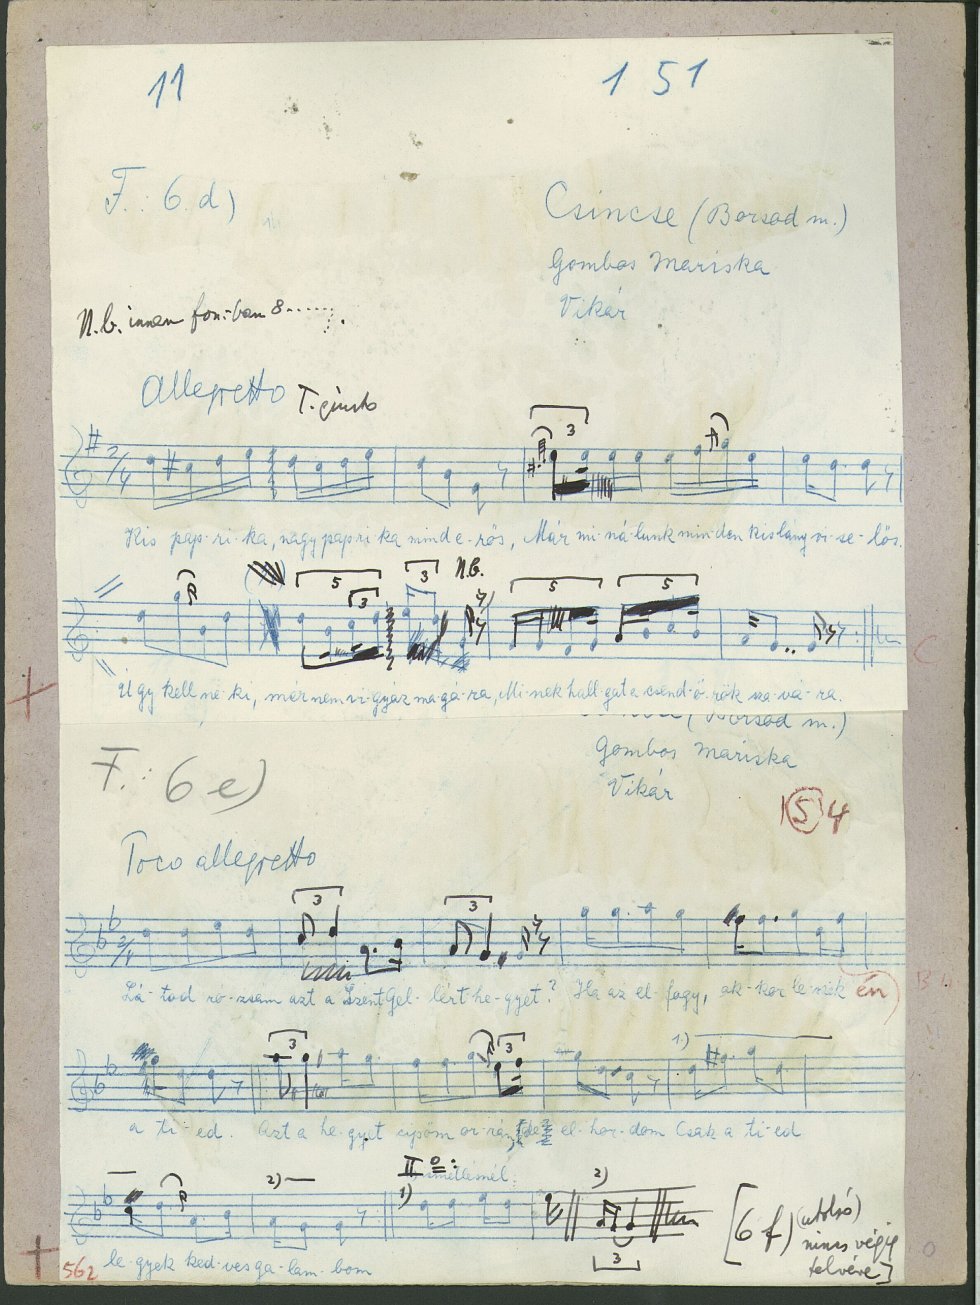 11 151
F. : 6. d)
Csincse (Borsod m.)
Gombos Mariska
Vikár
N.b. innen fon.-ban 8......
Allegretto T. giusto
3
2/4
Kis pap-ri-ka, nagy pap ri ka mind e-rős, Már mi-ná-lunk min-den kis lány vi-se-lős.
5 3 3 N.b. 5 5
Úgy kell ne-ki, mér nem vi-gyáz ma-gá-ra, Mi-nek hall-gat a csend-ő-rök sza-vá-ra.
C
(Borsod m.)
F. : 6 e)
Gombos Mariska
Vikár
154
Poco allegretto
3 3
2/4
Lá-tod ró-zsám azt a Szent Gel-lért he-gyet? Ha az el-fogy, ak-kor le-szek én
3 3 1)
a ti-ed. Azt a he-gyet cipőm or-rán el-hor-dom Csak a ti-ed
2) II 1) 2)
ismétlésnél:
3
le-gyek ked-ves ga-lam-bom
[6 f) (utolsó)
nincs végig
felvéve]
562